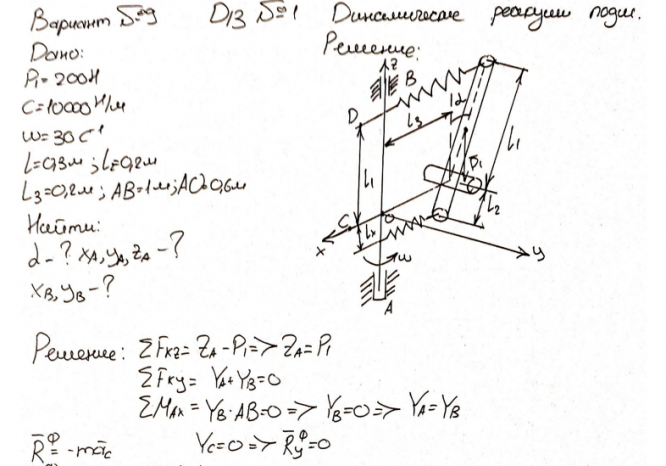 Вариант №9 Д13 №1 Динамические реакции подш.
Дано:
Решение:
P₁=200Н
C=10000 Н/м
ω=30 с⁻¹
L=0,3м; L₂=0,2м
L₃=0,2м; AB=1м; AO=0,6м
Найти:
α-? XA, YA, ZA-?
XB, YB-?
z
B
D
L₃
α
L₁
L₁
P₁
L₂
C
O
L₂
x
y
ω
A
Решение: ΣFкz = ZA - P₁ => ZA = P₁
ΣFкy = YA + YB = 0
ΣMAx = YB · AB = 0 => YB = 0 => YA = YB
R̄ᶲ = -māc Yc = 0 => R̄yᶲ = 0